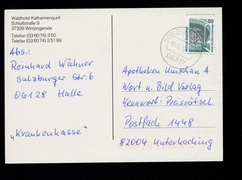 Waldhotel Katharinenquell
Schloßstraße 9
37339 Wintzingerode
Telefon (03 60 74) 3 50
Telefax (03 60 74) 3 51 99
Abs.:
Reinhard Wähner
Salzburger Str. 6
06128 Halle
"Krankenkasse"
Apotheken Umschau A
Wort u. Bild Verlag
Kennwort: Preisrätsel
Postfach 1448
82004 Unterhaching